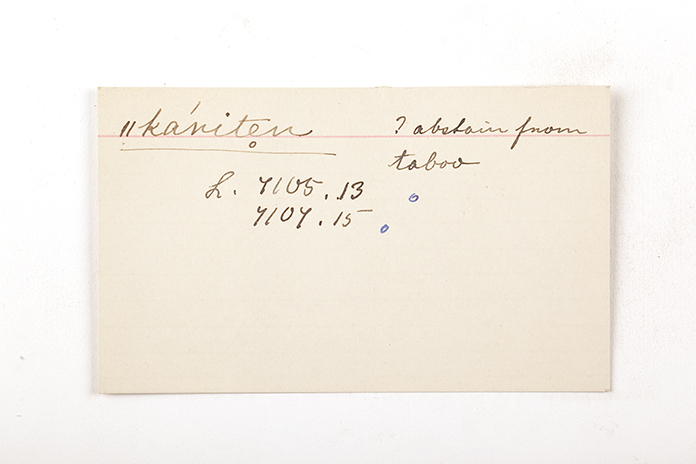 ǁkáriten ? abstain from
taboo
L. 7105.13
7107.15